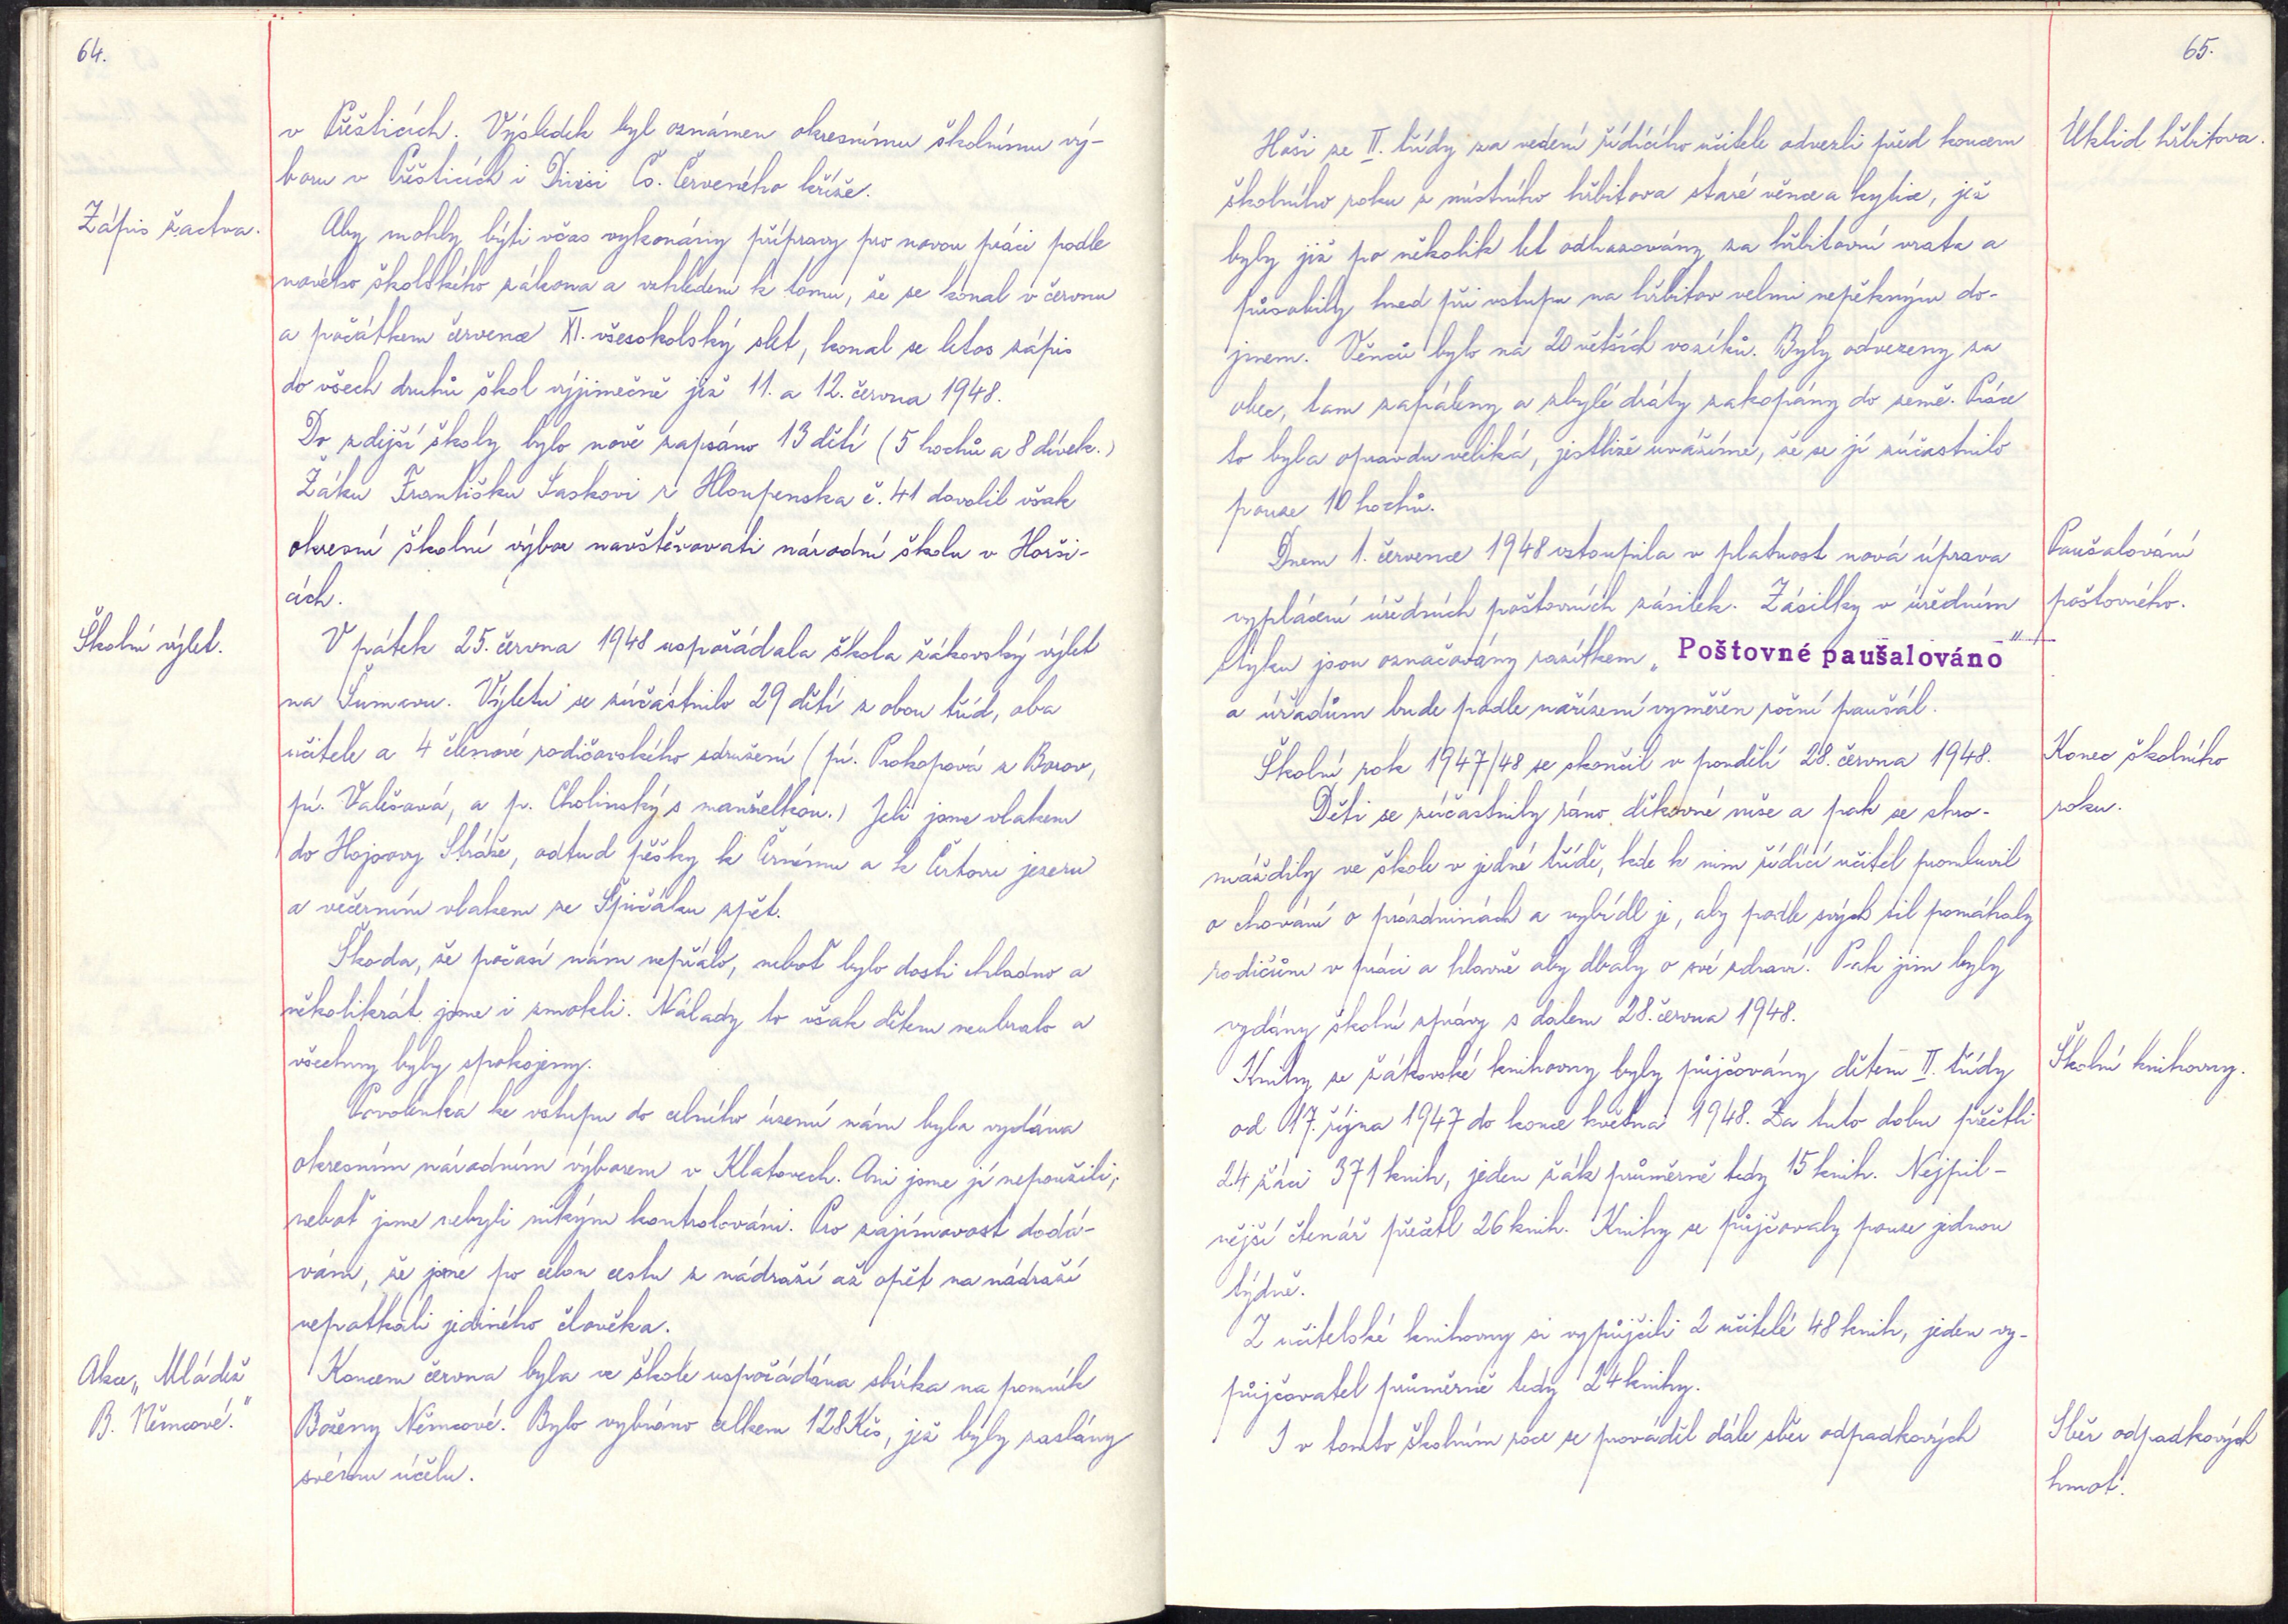 64.
v Přešticích. Výsledek byl oznámen okresnímu školnímu vý-
boru v Přešticích i Divisi Čs. Červeného kříže.
Zápis žactva.
Aby mohly býti včas vykonány přípravy pro novou práci podle
nového školského zákona a vzhledem k tomu, že se konal v červnu
a počátkem července XI. všesokolský slet, konal se letos zápis
do všech druhů škol výjimečně již 11. a 12. června 1948.
Do zdejší školy bylo nově zapsáno 13 dětí (5 hochů a 8 dívek.)
Žáku Františku Saskovi z Hloupenska č. 41 dovolil však
okresní školní výbor navštěvovati národní školu v Horši-
cích.
Školní výlet.
V pátek 25. června 1948 uspořádala škola žákovský výlet
na Šumavu. Výletu se zúčastnilo 29 dětí z obou tříd, oba
učitelé a 4 členové rodičovského sdružení (pí. Prokopová z Borov,
pí. Valešová, a p. Cholinský s manželkou.) Jeli jsme vlakem
do Hojsovy Stráže, odtud pěšky k Černému a k Čertovu jezeru
a večerním vlakem ze Špičáku zpět.
Škoda, že počasí nám nepřálo, neboť bylo dosti chladno a
několikrát jsme i zmokli. Nálady to však dětem neubralo a
všechny byly spokojeny.
Povolenka ke vstupu do celního území nám byla vydána
okresním národním výborem v Klatovech. Ani jsme jí nepoužili,
neboť jsme nebyli nikým kontrolováni. Pro zajímavost dodá-
vám, že jsme po celou cestu z nádraží až opět na nádraží
nepotkali jediného člověka.
Akce „Mládež
B. Němcové."
Koncem června byla ve škole uspořádána sbírka na pomník
Boženy Němcové. Bylo vybráno celkem 128 Kčs, jež byly zaslány
svému účelu.
65.
Úklid hřbitova.
Hoši ze II. třídy za vedení řídícího učitele odvezli před koncem
školního roku z místního hřbitova staré věnce a kytice, jež
byly již po několik let odhazovány za hřbitovní vrata a
působily hned při vstupu na hřbitov velmi nepěkným do-
jmem. Věnců bylo na 20 větších vozíků. Byly odvezeny za
obec, tam zapáleny a zbylé dráty zakopány do země. Práce
to byla opravdu veliká, jestliže uvážíme, že se jí zúčastnilo
pouze 10 hochů.
Paušalování
poštovného.
Dnem 1. července 1948 vstoupila v platnost nová úprava
vyplácení úředních poštovních zásilek. Zásilky v úředním
styku jsou označovány razítkem „Poštovné paušalováno"
a úřadům bude podle nařízení vyměřen roční paušál.
Konec školního
roku.
Školní rok 1947/48 se skončil v pondělí 28. června 1948.
Děti se zúčastnily ráno děkovné mše a pak se shro-
máždily ve škole v jedné třídě, kde k nim řídící učitel promluvil
o chování o prázdninách a vybídl je, aby podle svých sil pomáhaly
rodičům v práci a hlavně aby dbaly o své zdraví. Pak jim byly
vydány školní zprávy s datem 28. června 1948.
Školní knihovny.
Knihy ze žákovské knihovny byly půjčovány dětem II. třídy
od 17. října 1947 do konce května 1948. Za tuto dobu přečtli
24 žáci 371 knih, jeden žák průměrně tedy 15 knih. Nejpil-
nější čtenář přečetl 26 knih. Knihy se půjčovaly pouze jednou
týdně.
Z učitelské knihovny si vypůjčili 2 učitelé 48 knih, jeden vy-
půjčovatel průměrně tedy 24 knihy.
Sběr odpadkových
hmot.
I v tomto školním roce se prováděl dále sběr odpadkových